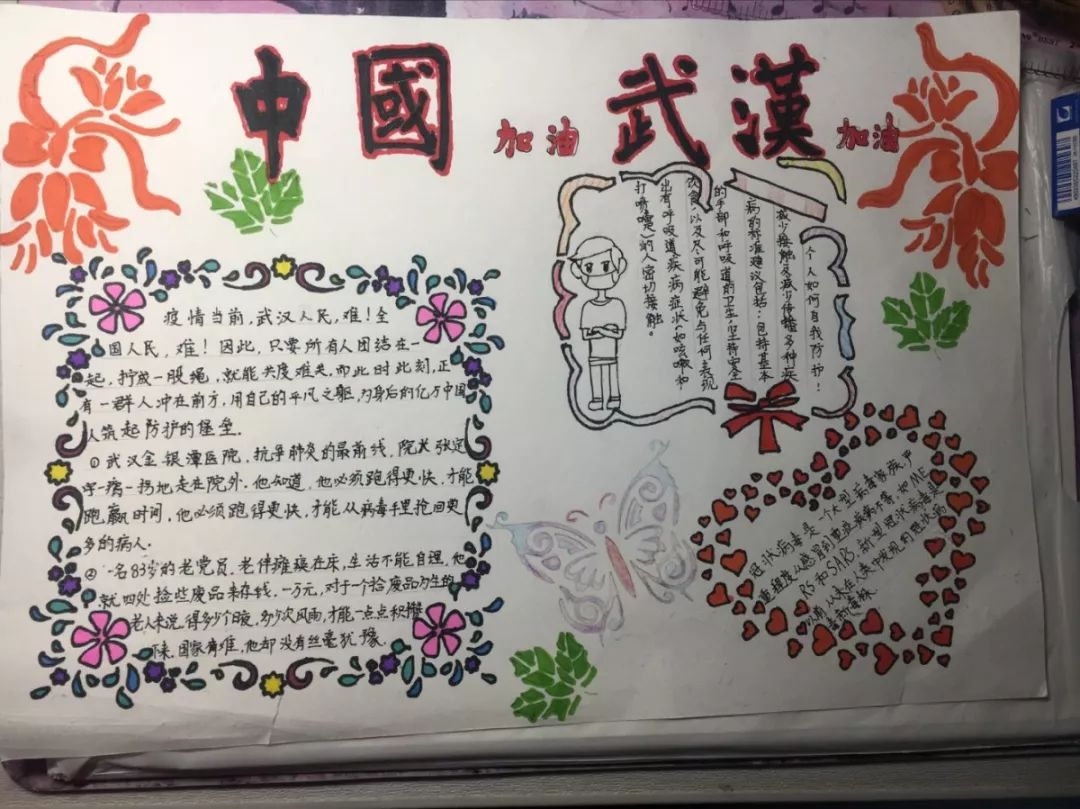 中國 加油 武漢 加油
疫情当前,武汉人民,难!全
国人民,难!因此,只要所有人团结在一
起,拧成一股绳,就能共度难关,而此时此刻,正
有一群人冲在前方,用自己的平凡之躯,为身后的亿万中国
人筑起防护的堡垒.
①武汉金银潭医院,抗争肺炎的最前线,院长张定
宇一瘸一拐地走在院外.他知道,他必须跑得更快,才能
跑赢时间,他必须跑得更快,才能从病毒手里抢回更
多的病人.
②一名83岁的老党员,老伴瘫痪在床,生活不能自理,他
就四处捡些废品来存钱.一万元,对于一个拾废品为生的
老人来说,得多少个日夜,多少次风雨,才能一点点积攒
下来,国家有难,他却没有丝毫犹豫.
个人如何自我防护!
减少接触及减少传播多种疾
病的标准建议包括:包持基本
的手部和呼吸道的卫生,坚持安全
饮食,以及尽可能避免与任何表现
出有呼吸道疾病症状(如咳嗽和
打喷嚏)的人密切接触。
冠状病毒是一个大型病毒家族,严
重程度从感冒到重症疾病不等,如ME
RS和SARS.新型冠状病毒是
以前从未在人类中发现的冠状病
毒新毒株.